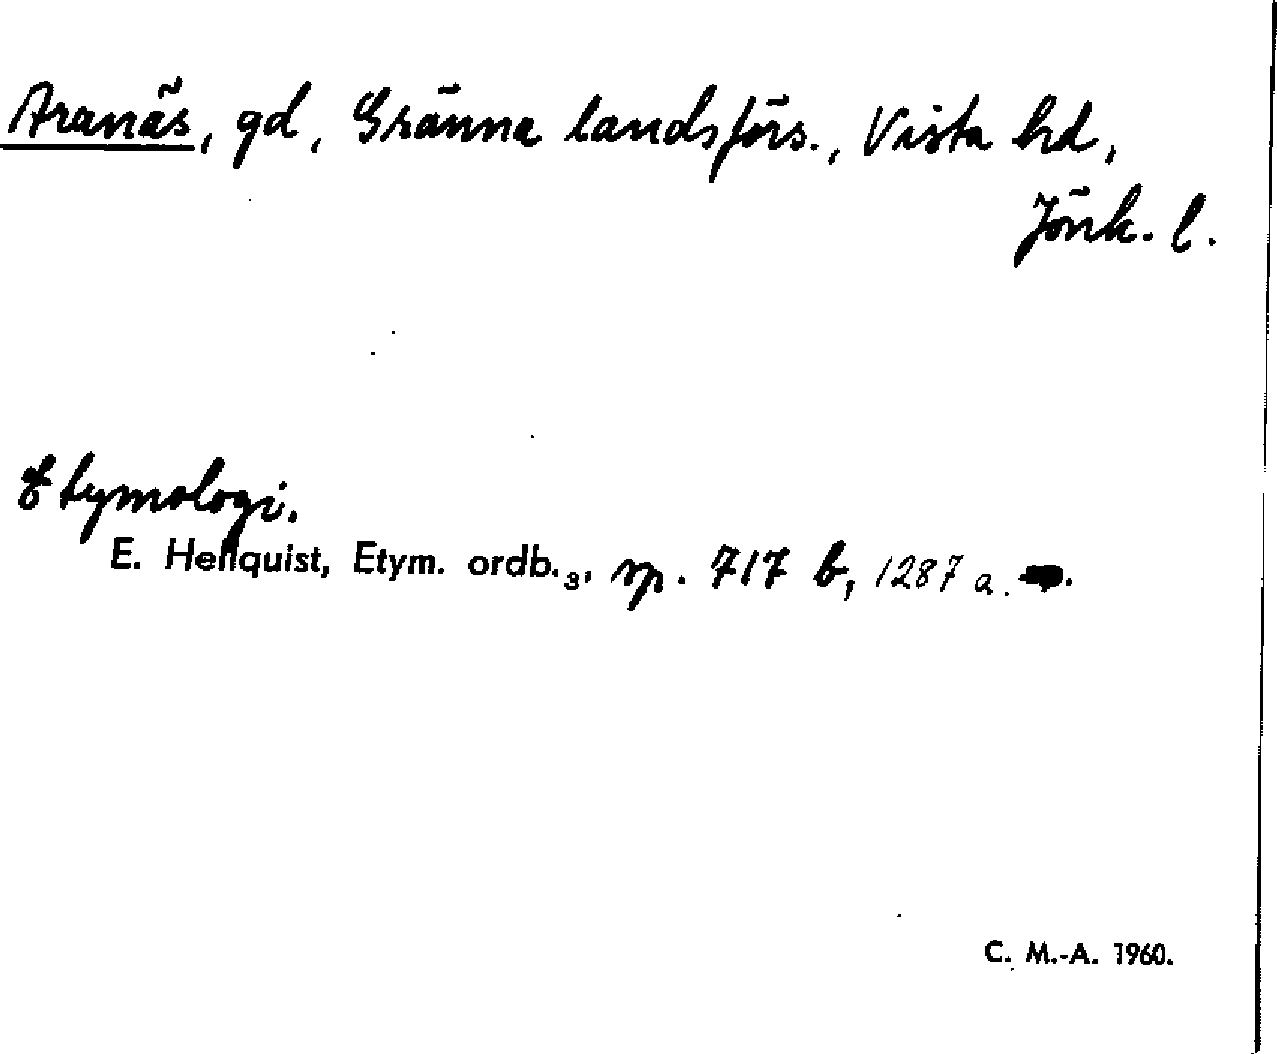 Aranäs, gd, Gränna landsförs., Vista hd,
Jönk. l.
Etymologi.
E. Hellquist, Etym. ordb.₃, sp. 717 b, 1287 a.
C. M.-A. 1960.